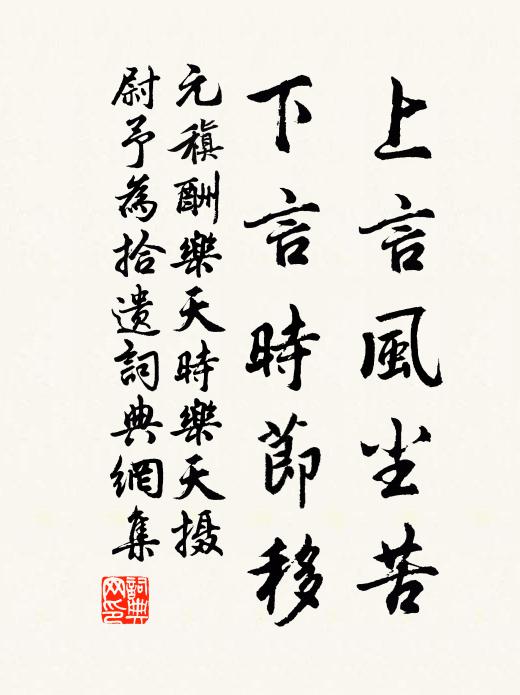 上言風尘苦
下言時節移
元稹酬樂天時樂天摄
尉予為拾遺詞典網集
詞典网印